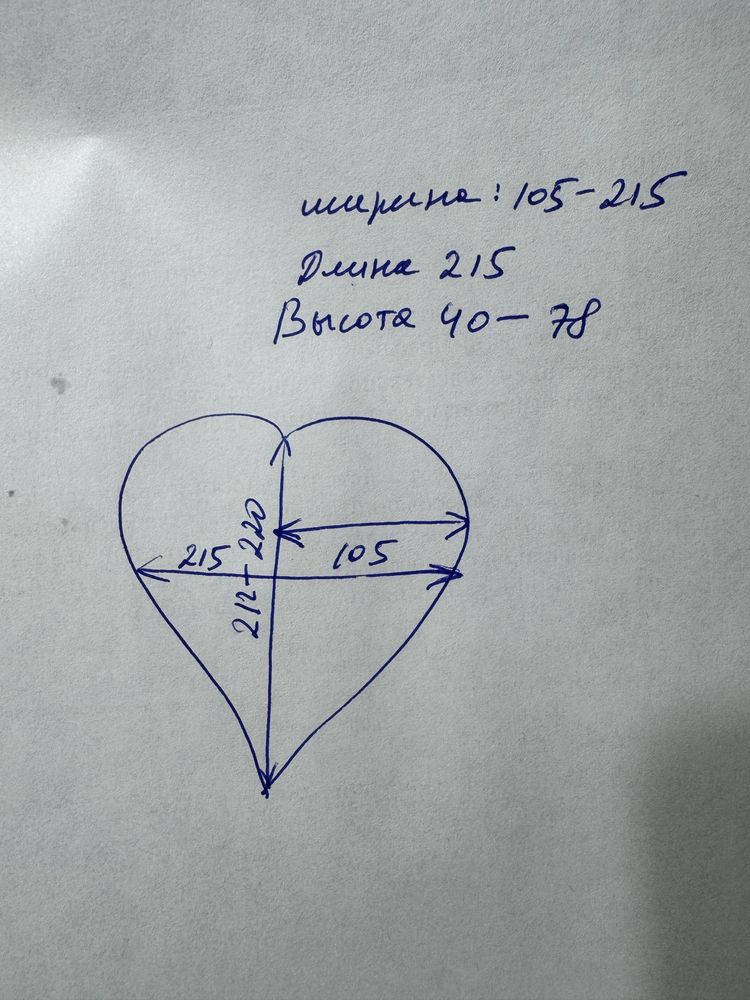 ширина: 105-215
Длина 215
Высота 40-78
212-220
215
105